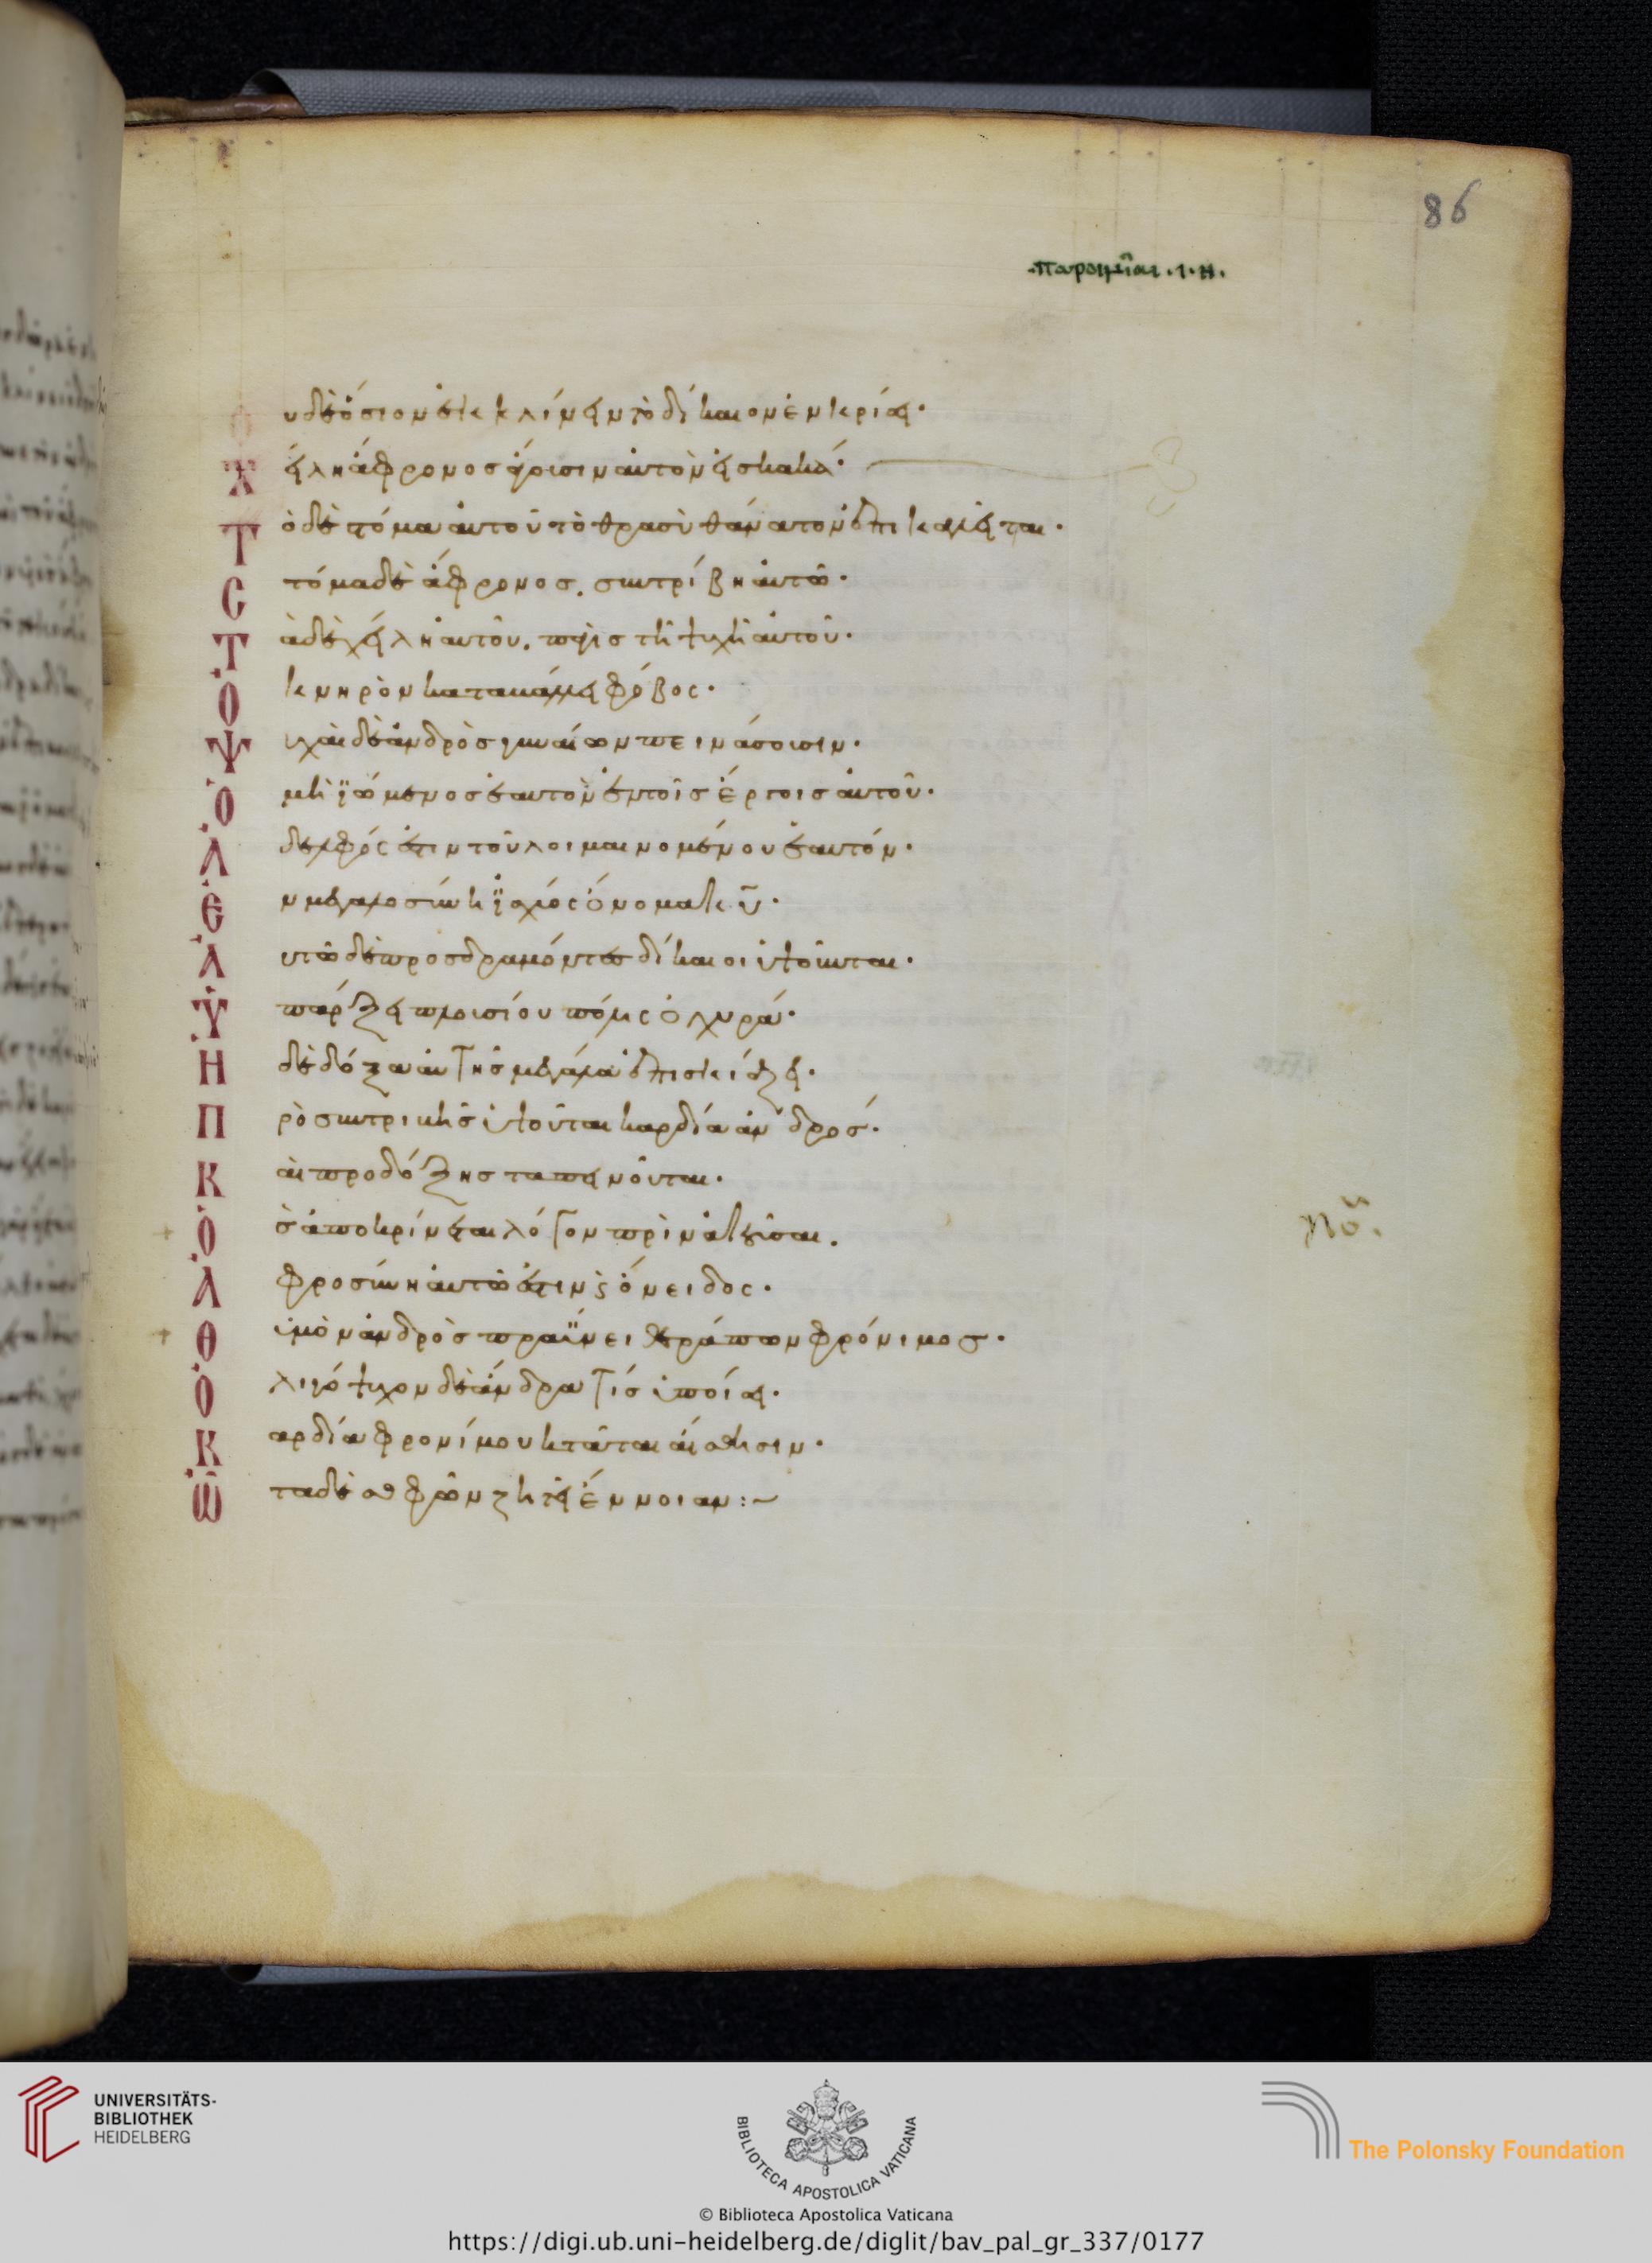 ·παροιμίαι·ι·η·
86
Οὐδὲ ὅσιον ἐκκλίνειν τὸ δίκαιον ἐν κρίσει·
Χείλη ἄφρονος ἄγουσιν αὐτὸν εἰς κακά·
Τὸ δὲ στόμα αὐτοῦ τὸ θρασὺ θάνατον ἐπικαλεῖται·
Στόμα δὲ ἄφρονος. συντρίβη αὐτῶ·
Τὰ δὲ χείλη αὐτοῦ. παγὶς τῆ ψυχῆ αὐτοῦ·
Ὀκνηρὸν καταβάλλει φόβος·
Ψυχαὶ δὲ ἀνδρὸς γυναίων πεινάσουσιν·
Ὁ μὴ ϊώμενος ἑαυτὸν ἐν τοῖς ἔργοις αὐτοῦ·
Ἀδελφός ἐστιν τοῦ λοιμαινομένου ἑαυτόν·
Ἐν μεγαλοσύνη ϊσχύος ὄνομα κ̅υ̅·
Αὐτῶ δὲ προσδραμόντες δίκαιοι ὑψοῦνται·
Ὕπαρξει πλουσίου πόλις ὀχυρά·
Η δὲ δόξα αὐτῆς μεγάλα ἐπισκιάζει·
Πρὸ συντριβῆς ὑψοῦται καρδία ἀνδρός·
Καὶ προ δόξης ταπεινοῦται·
Ὃς ἀποκρίνεται λόγον πρὶν ἀκοῦσαι.
Ἀφροσύνη αὐτῶ ἐστιν ϗ ὄνειδος·
Θυμὸν ἀνδρὸς πραΰνει θεράπων φρόνιμος·
Ὀλιγόψυχον δὲ ἄνδρα τίς ὑποίσει·
Καρδία φρονίμου κτᾶται αἴσθησιν·
Ὦτα δὲ σοφῶν ζητεῖ ἔννοιαν:~
UNIVERSITÄTS-
BIBLIOTHEK
HEIDELBERG
BIBLIOTECA APOSTOLICA VATICANA
The Polonsky Foundation
© Biblioteca Apostolica Vaticana
https://digi.ub.uni-heidelberg.de/diglit/bav_pal_gr_337/0177